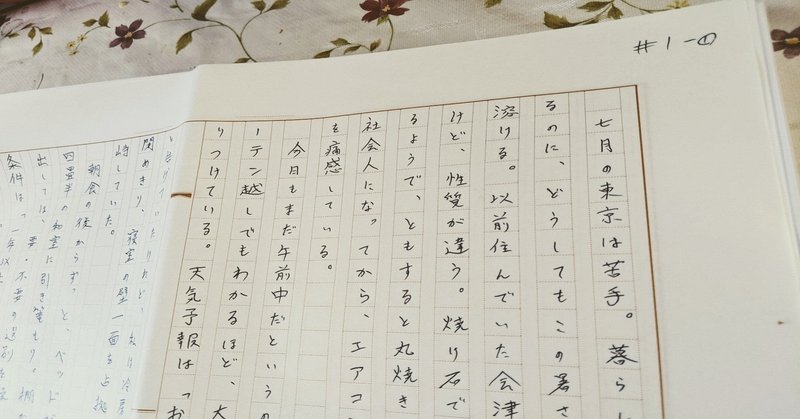 #1-①
七月の東京は苦手。暮ら
るのに、どうしてもこの暑さ
溶ける。以前住んでいた会津
けど、性質が違う。焼け石で
るようで、ともすると丸焼き
社会人になってから、エアコ
を痛感している。
今日もまだ午前中だというの
ーテン越しでもわかるほど、
りつけている。天気予報は「お
と告げていたけれど、私は冷房
閉めきり、寝室の壁一面を占拠
峙していた。
朝食の後からずっと、ベッドが
四畳半の和室に引き篭もり。棚
出しては、要・不要の選別を
条件は「一年以